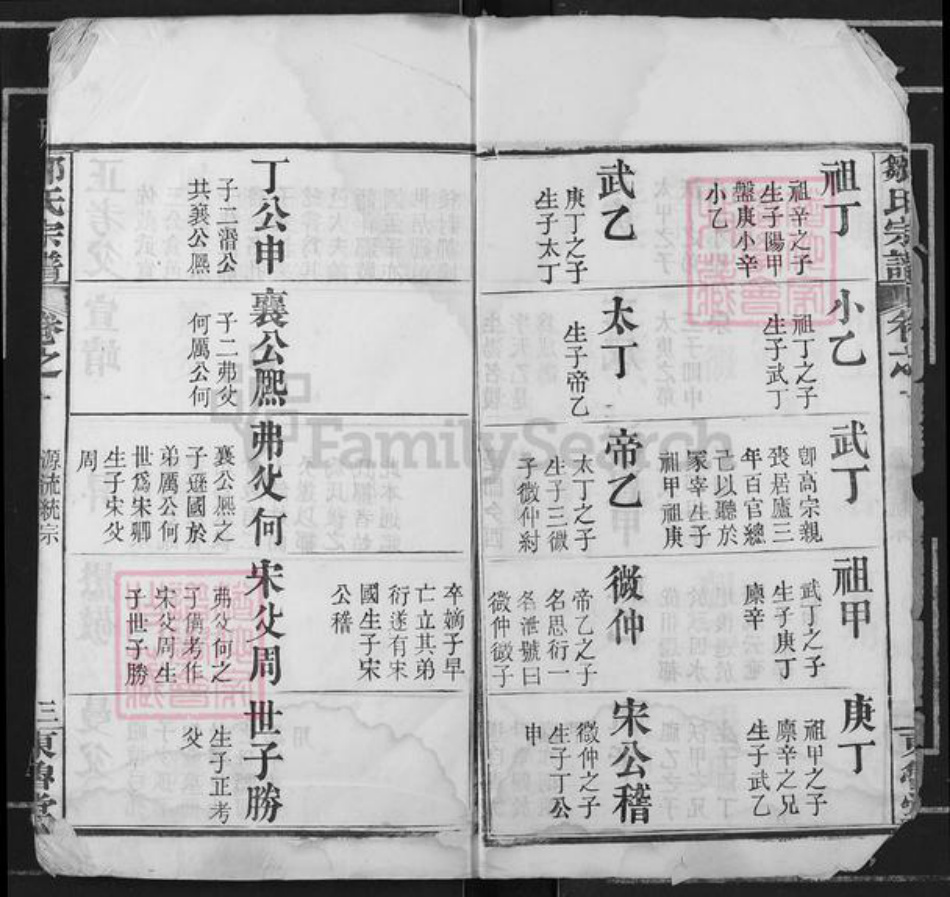 鄒氏宗譜
卷之一
祖丁
祖辛之子
生子陽甲
盤庚小辛
小乙
小乙
祖丁之子
生子武丁
武丁
卽高宗親
喪居廬三
年百官總
己以聽於
冢宰生子
祖甲祖庚
祖甲
武丁之子
生子庚丁
廩辛
庚丁
祖甲之子
廩辛之兄
生子武乙
武乙
庚丁之子
生子太丁
太丁
生子帝乙
帝乙
太丁之子
生子三微
子微仲紂
微仲
帝乙之子
名思衍一
名泄號曰
微仲微子
宋公稽
微仲之子
生子丁公
申
卒嫡子早
亡立其弟
衍遂有宋
國生子宋
公稽
丁公申
子二湣公
共襄公熈
襄公熈
子二弗父
何厲公何
弗父何
襄公熈之
子遜國於
弟厲公何
世爲宋卿
生子宋父
周
宋父周
弗父何之
子備考作
宋父周生
子世子勝
世子勝
生子正考
父
鄒氏宗譜
卷之一
源流統宗
三
東魯堂
FamilySearch